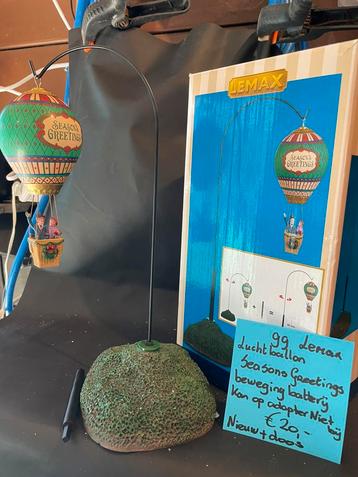 SEASON'S
GREETINGS
LEMAX
SEASON'S
GREETINGS
99 Lemax
Luchtballon
Seasons Greetings
beweging batterij
Kan op adapter Niet bij
€ 20,-
Nieuw + doos